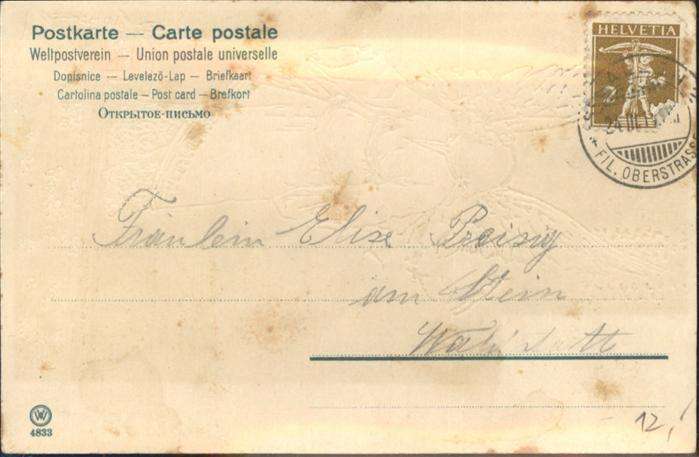 Postkarte — Carte postale
Weltpostverein — Union postale universelle
Dopisnice — Levelező-Lap — Briefkaart
Cartolina postale — Post card — Brefkort
Открытое письмо
HELVETIA
2
24.III.
FIL. OBERSTRASS
Fräulein Elise Preisig
am Stein
W
4833
12,